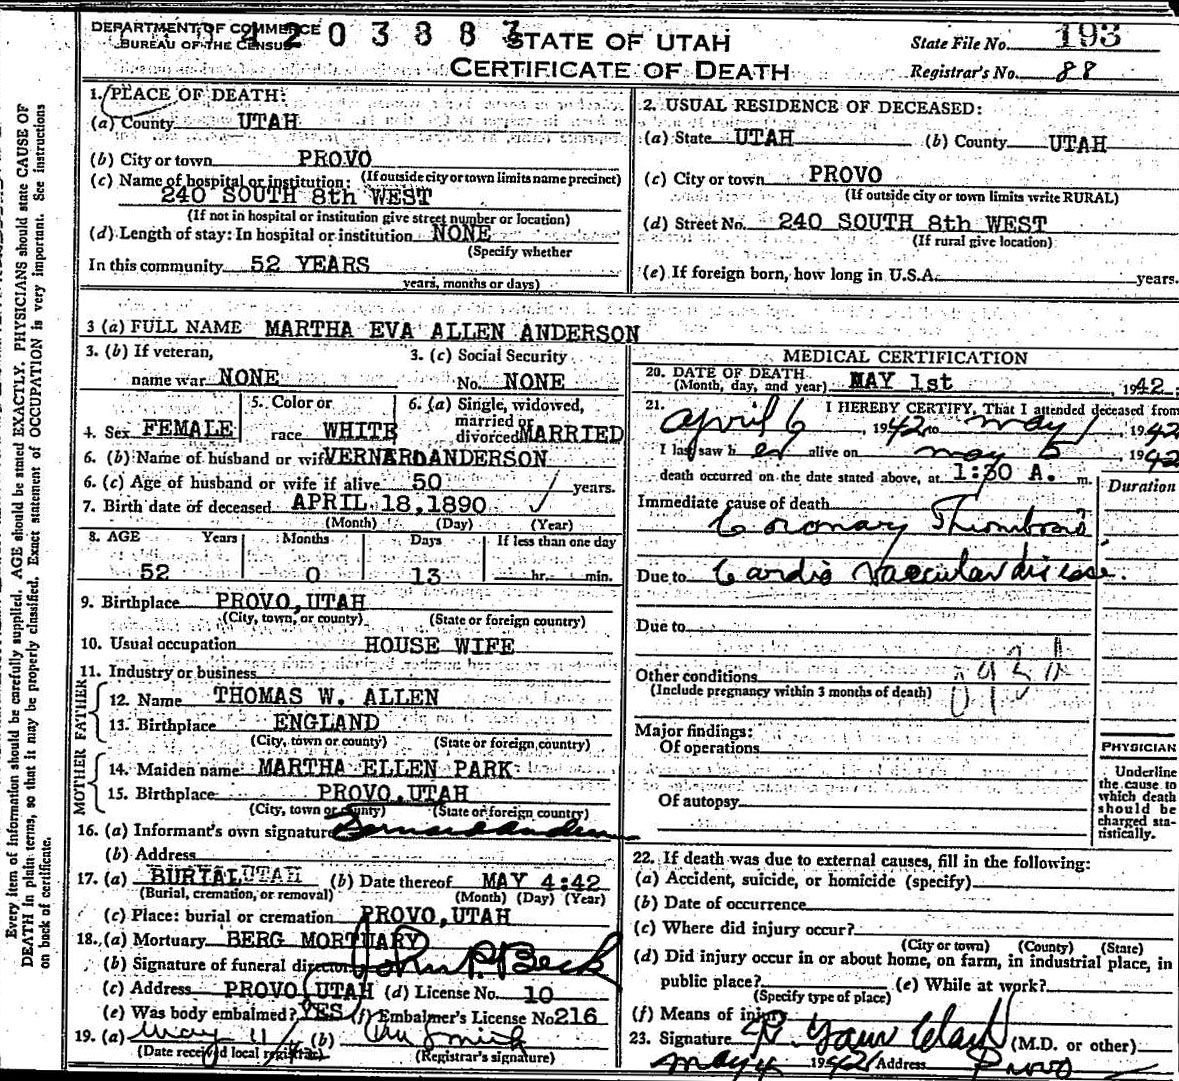 DEPARTMENT OF COMMERCE
BUREAU OF THE CENSUS
STATE OF UTAH
CERTIFICATE OF DEATH
State File No. 193
Registrar's No. 88
1. PLACE OF DEATH:
(a) County UTAH
(b) City or town PROVO
(If outside city or town limits name precinct)
(c) Name of hospital or institution:
240 SOUTH 8th WEST
(If not in hospital or institution give street number or location)
(d) Length of stay: In hospital or institution NONE
(Specify whether
In this community 52 YEARS
years, months or days)
2. USUAL RESIDENCE OF DECEASED:
(a) State UTAH (b) County UTAH
(c) City or town PROVO
(If outside city or town limits write RURAL)
(d) Street No. 240 SOUTH 8th WEST
(If rural give location)
(e) If foreign born, how long in U.S.A. years.
3 (a) FULL NAME MARTHA EVA ALLEN ANDERSON
3. (b) If veteran,
name war NONE
3. (c) Social Security
No. NONE
4. Sex FEMALE
5. Color or
race WHITE
6. (a) Single, widowed,
married or
divorced MARRIED
6. (b) Name of husband or wife VERNARD ANDERSON
6. (c) Age of husband or wife if alive 50 years.
7. Birth date of deceased APRIL 18, 1890
(Month) (Day) (Year)
8. AGE Years Months Days If less than one day
52 0 13 hr. min.
9. Birthplace PROVO, UTAH
(City, town, or county) (State or foreign country)
10. Usual occupation HOUSE WIFE
11. Industry or business
FATHER
12. Name THOMAS W. ALLEN
13. Birthplace ENGLAND
(City, town or county) (State or foreign country)
MOTHER
14. Maiden name MARTHA ELLEN PARK
15. Birthplace PROVO, UTAH
(City, town or county) (State or foreign country)
16. (a) Informant's own signature
(b) Address
17. (a) BURIAL UTAH (b) Date thereof MAY 4:42
(Burial, cremation, or removal) (Month) (Day) (Year)
(c) Place: burial or cremation PROVO, UTAH
18. (a) Mortuary BERG MORTUARY
(b) Signature of funeral director
(c) Address PROVO, UTAH (d) License No. 10
(e) Was body embalmed? YES (f) Embalmer's License No 216
19. (a) May 11 (b)
(Date received local registrar) (Registrar's signature)
MEDICAL CERTIFICATION
20. DATE OF DEATH
(Month, day, and year) MAY 1st, 1942
21. I HEREBY CERTIFY, That I attended deceased from
April 6, 1942 to May 1, 1942
I last saw her alive on May 5, 1942
death occurred on the date stated above, at 1:30 A. m.
Duration
Immediate cause of death
Coronary Thrombosis
Due to Cardio Vascular disease.
Due to
Other conditions
(Include pregnancy within 3 months of death)
Major findings:
Of operations
Of autopsy
PHYSICIAN
Underline
the cause to
which death
should be
charged sta-
tistically.
22. If death was due to external causes, fill in the following:
(a) Accident, suicide, or homicide (specify)
(b) Date of occurrence
(c) Where did injury occur?
(City or town) (County) (State)
(d) Did injury occur in or about home, on farm, in industrial place, in
public place? (e) While at work?
(Specify type of place)
(f) Means of injury
23. Signature (M.D. or other)
May 1942 Address Provo
Every item of information should be carefully supplied. AGE should be stated EXACTLY. PHYSICIANS should state CAUSE OF
DEATH in plain terms, so that it may be properly classified. Exact statement of OCCUPATION is very important. See instructions
on back of certificate.